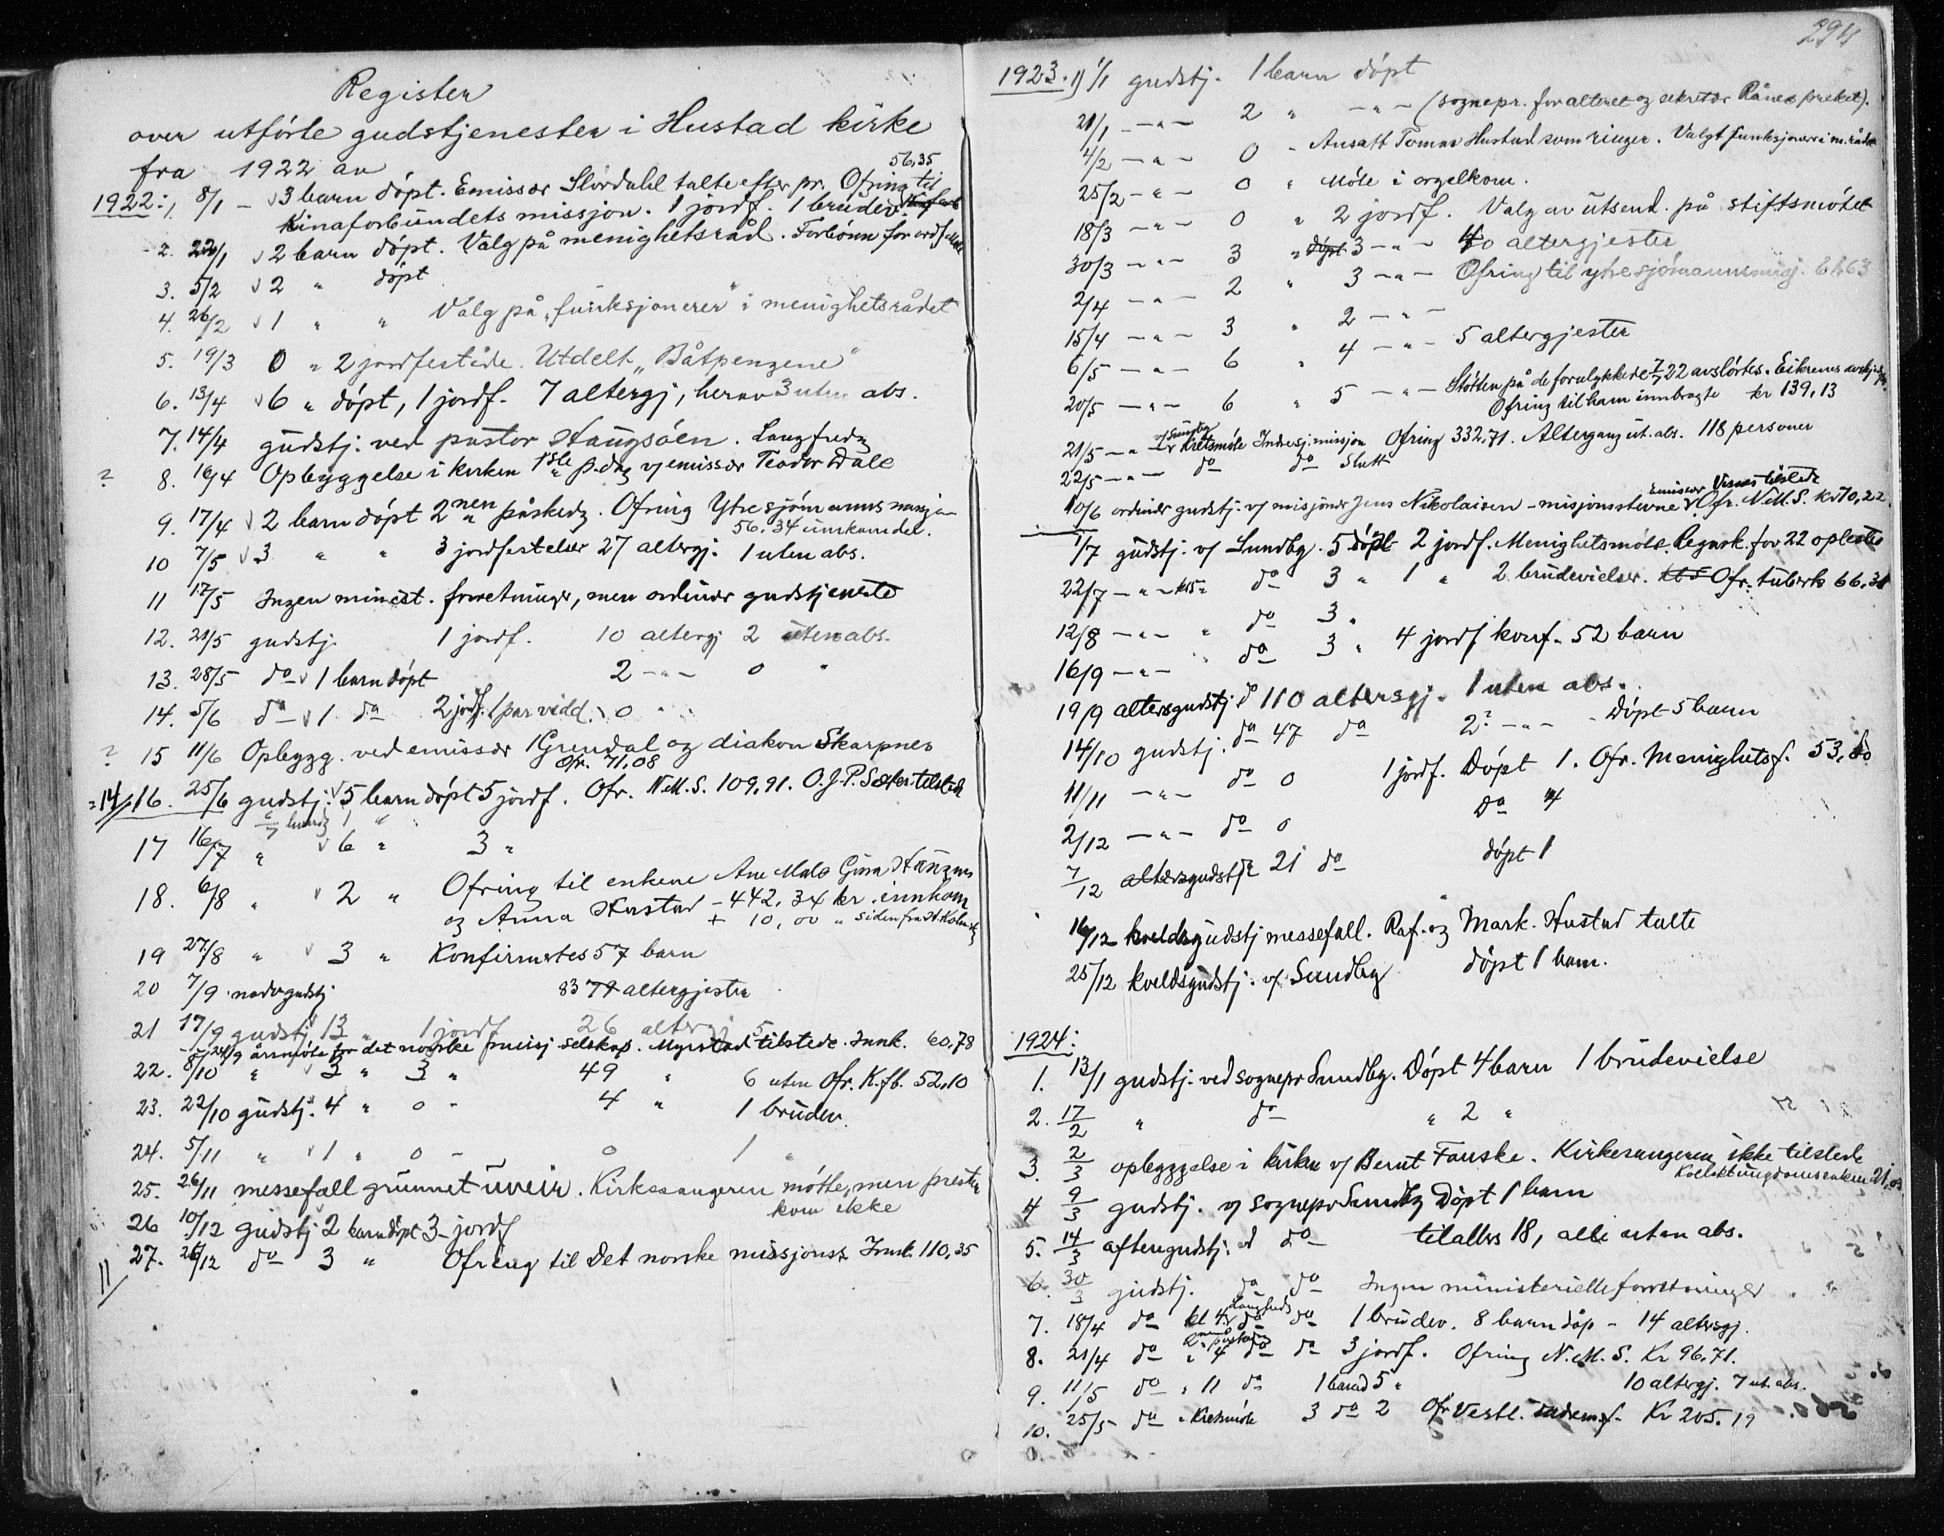 Register
over utförte gudstjenester i Hustad kirke
fra 1922 av
56,35
1922: 1. 8/1 - 3 barn döpt. Emissær Slördahl talte efter pr. Ofring til
Kinaforbundets missjon. 1 jordf. 1 brudev.
2. 22/1 2 barn döpt. Valg på menighetsråd. Forbönn for
3. 5/2 2 " döpt
4. 26/2 1 " " Valg på "funksjonerer" i menighetsrådet
5. 19/3 0 " 2 jordfestede. Utdelt "Båtpengene"
6. 13/4 6 " döpt, 1 jordf. 7 altergj, herav 3 uten abs.
7. 14/4 gudstj. ved pastor Haugsöen. Langfredg
? 8. 16/4 Opbyggelse i kirken 1ste p.dag v/ emissær Teodor Dale
9. 17/4 2 barn döpt 2nen påskedg. Ofring Ytre sjömannsmisjon
56.34 innkom del.
10 7/5 3 " " 3 jordfestelser 27 altergj. 1 uten abs.
11 17/5 Ingen minist. forretninger, men ordinær gudstjeneste
12. 21/5 gudstj. 1 jordf. 10 altergj 2 uten abs.
13. 28/5 do 1 barn döpt 2 -"- 0 "
14. 5/6 do 1 do 2 jordf. 1 par vidd. 0 " "
? 15 11/6 Opbygg. ved emissær Grendal og diakon Skarpnes
Ofr. 71,08
=14/ 16. 25/6 gudstj. 5 barn döpt 5 jordf. Ofr. N.M.S. 109,91. O.J.P. Sæter tilstede
17 16/7 " 6 " 3 "
18. 6/8 " 2 " Ofring til enkene Ane Mals Gjøra Haugnes
og Anna Hustad - 442,34 kr. innkom
+ 10,00 " siden fra
19 27/8 " 3 " Konfirmertes 57 barn
20 7/9 nadvgudstj 83 altergjester
21 17/9 gudstj 13 " 1 jordf 26 altergj 5
24/9 årsmöte for det norske selskap. Myrstad tilstede. Innk. 60,78
22. 8/10 " 3 " 3 " 49 " 6 uten Ofr. K.fb. 52,10
23. 22/10 gudstj. 4 " 0 - 4 " 1 brudev.
24. 5/11 " 1 " 0 - 0 1 "
25. 26/11 messefall grunnet uveir. Kirkesangeren mötte, men presten
kom ikke
26 10/12 gudstj 2 barn döpt 3 jordf
27. 26/12 do 3 " Ofring til Det norske missjonss. Innk. 110,35
11/
294
1923. 1) 1/1 gudstj. 1 barn döpt
21/1 -"- 2 " -"- (sognepr. for alteret og sekretær Rånes preket).
4/2 -"- 0 - Ansatt Tomas Hustad som ringer. Valgt funksjonær i m.rådet
25/2 -"- 0 " Möte i orgelkom.
18/3 -"- 0 " 2 jordf. Valg av utsend. på stiftsmötet
30/3 -"- 3 " döpt 3 -"- 40 altergjester
2/4 -"- 2 " 3 -"- Ofring til ytre sjömannsmisj.
15/4 -"- 3 " 2 -"-
6/5 -"- 6 " 4 -"- 5 altergjester
20/5 -"- 6 " 5 -"- Stötten på de forulykkede 7/7 22 avslörtes. Eikrems
Ofring til ham innbragte kr 139,13
21/5 -"- v/ Sundby Kretsmöte Indresj.missjon Ofring 332,71. Altergang ut. abs. 118 personer
22/5 -"- do do Slutt
10/6 ordinær gudstj. v/ misjonær Jens Nikolaisen - misjonsstevne Emissær Visnes tilstede Ofr. N.M.S. kr 70,22
1/7 gudstj. v/ Sundby. 5 döpt 2 jordf. Menighetsmöte. Regnsk. for 22 oplestes
22/7 -"- do 3 " 1 " 2 brudevielser. Ofr. tuberk 66,31
12/8 -"- " do 3 "
16/9 -"- " do 3 " 4 jordf konf. 52 barn
19/9 altersgudstj do 110 altersgj. 1 uten abs.
14/10 gudstj. do 47 do 2? -"- - Döpt 5 barn
11/11 -"- do 0 1 jordf. Döpt 1. Ofr. Menighetsf. 53,80
2/12 -"- do 0 Do 4
7/12 altersgudstj 21 do döpt 1
16/12 kveldsgudstj messefall. Raf. og Mark. Hustad talte
25/12 kveldsgudstj. v/ Sundby döpt 1 barn.
1924:
1. 13/1 gudstj. ved sognepr Sundby. Döpt 4 barn 1 brudevielse
2. 17/2 " do " 2 "
3. 2/3 opbyggelse i kirken v/ Bernt Fauske. Kirkesangeren ikke tilstede
4 9/3 gudstj. v/ sognepr Sundby Döpt 1 barn
5. 14/3 aftengudstj. do tilalters 18, alle uten abs.
6. 30/3 gudstj. do do Ingen ministerielle forretninger
7. 18/4 do kl 4 Langfredg do do 1 brudev. 8 barn döp - 14 altersgj.
8. 21/4 do " 4 do do 3 jordf. Ofring N.M.S. Kr 96,71.
9. 11/5 do " 11 do 1 barn 5 " 10 altergj. 7 ut. abs.
10. 25/5 do " Kretsmöte 3 do 2 Ofr Vestl. indremf. Kr 205.19